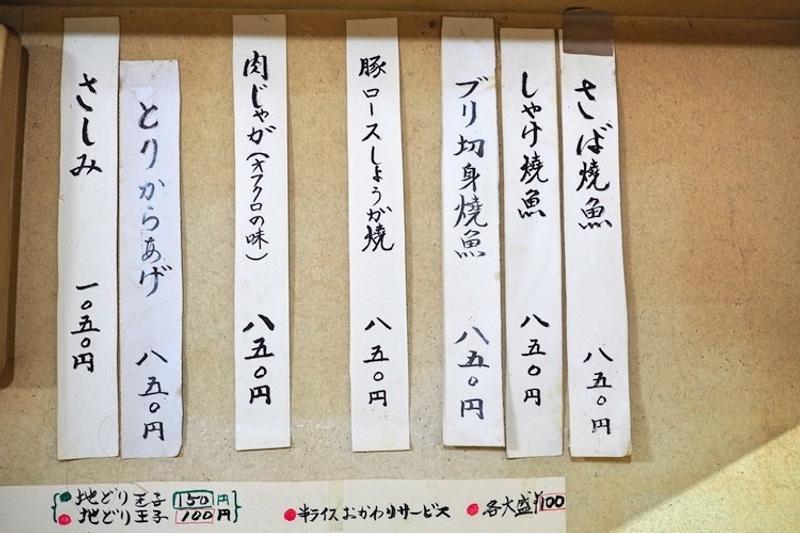 さば燒魚 八五〇円
しゃけ燒魚 八五〇円
ブリ切身燒魚 八五〇円
豚ロースしょうが燒 八五〇円
肉じゃが(オフクロの味) 八五〇円
とりからあげ 八五〇円
さしみ 一〇五〇円
地どり玉子 150円
地どり玉子 100円
半ライスおかわりサービス
各大盛¥100